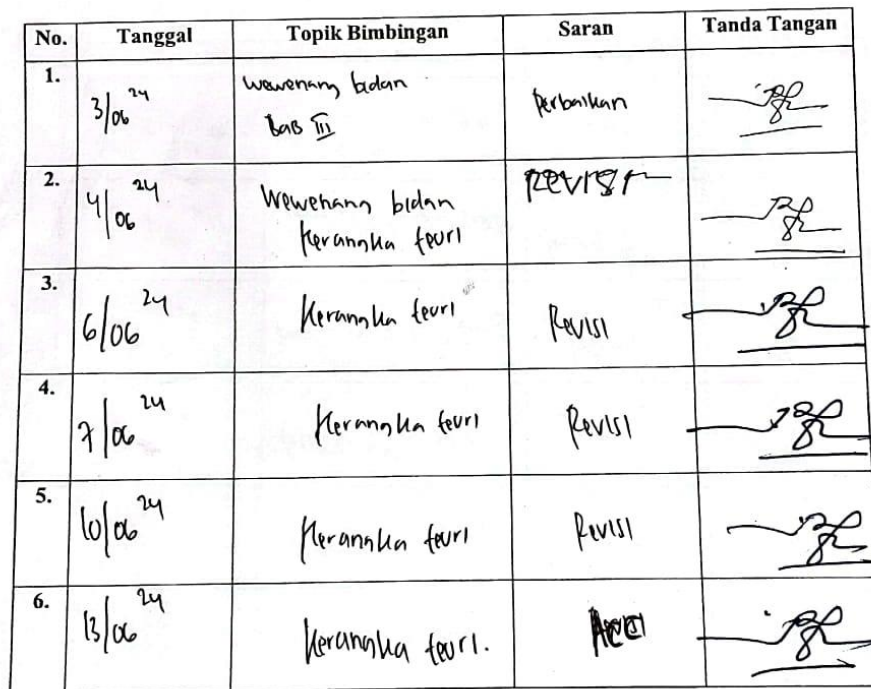 No. Tanggal Topik Bimbingan Saran Tanda Tangan
1. 3/06 24 wewenang bidan Perbaikan
BAB III
2. 4/06 24 Wewenang bidan REVISI
Kerangka teori
3. 6/06 24 Kerangka teori Revisi
4. 7/06 24 Kerangka teori Revisi
5. 10/06 24 Kerangka teori Revisi
6. 13/06 24 Kerangka teori. ACC